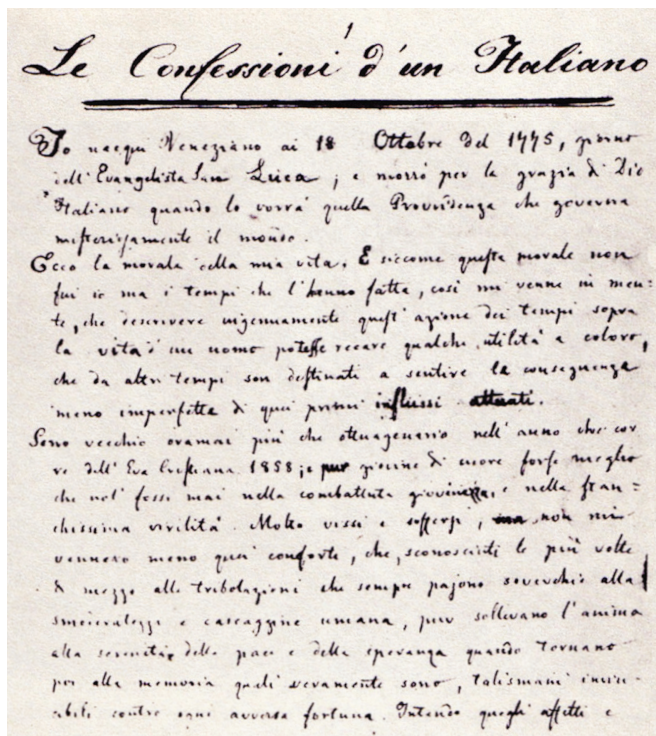 1
Le Confessioni d'un Italiano
Io nacqui Veneziano ai 18 Ottobre del 1775, giorno
dell'Evangelista San Luca; e morrò per la grazia di Dio
Italiano quando lo vorrà quella Provvidenza che governa
misteriosamente il mondo.
Ecco la morale della mia vita. E siccome questa morale non
fui io ma i tempi che l'hanno fatta, così mi venne in men=
te, che descrivere ingenuamente quest'azione dei tempi sopra
la vita d'un uomo potesse recare qualche utilità a coloro,
che da altri tempi son destinati a sentire le conseguenze
meno imperfette di quei primi influssi attuati.
Sono vecchio oramai più che ottuagenario nell'anno che cor
re dell'Era Cristiana 1858; e pur giovine di cuore forse meglio
che nol fossi mai nella combattuta giovinezza, e nella stan=
chissima virilità. Molto vissi e soffersi, ma non mi
vennero meno quei conforti, che, sconosciuti le più volte
di mezzo alle tribolazioni che sempre pajono soverchie alla
smoderatezza e cascaggine umana, pur sollevano l'anima
alla serenità della pace e della speranza quando tornano
poi alla memoria quali veramente sono, talismani invin-
cibili contro ogni avversa fortuna. Intendo quegli affetti e